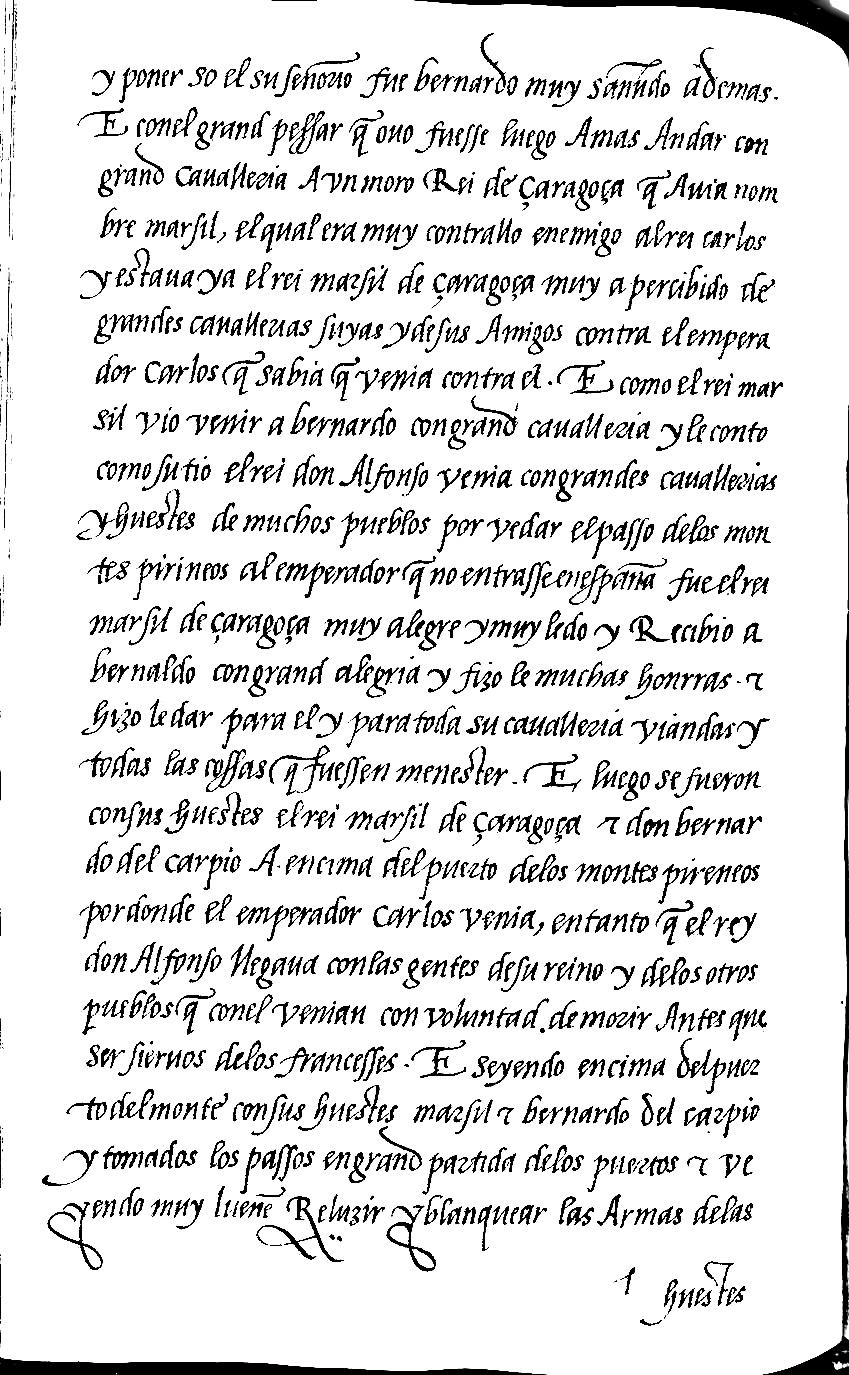 y poner so el su señorio fue bernardo muy sañudo ademas.
E conel grand pessar q̃ ouo fuesse luego Amas Andar con
grand cauallezia A vn moro Rei de Çaragoça q̃ Auia nom
bre marsil, el qual era muy contrallo enemigo al rei carlos
y estaua ya el rei marsil de çaragoça muy apercibido de
grandes cauallerias suyas y de sus Amigos contra el empera
dor Carlos q̃ sabia q̃ venia contra el. E como el rei mar
sil vio venir a bernardo con grand caualleria y le conto
como su tio el rei don Alfonso venia con grandes cauallerias
y huestes de muchos pueblos por vedar el passo delos mon
tes pirineos al emperador q̃ no entrasse en españa fue el rei
marsil de çaragoça muy alegre y muy ledo y Recibio a
bernaldo con grand alegria y fizo le muchas honrras. ⁊
hizo le dar para el y para toda su caualleria viandas y
todas las cossas q̃ fuessen menester. E luego se fueron
con sus huestes el rei marsil de çaragoça ⁊ don bernar
do del carpio A encima del puerto delos montes pireneos
por donde el emperador Carlos venia, entanto q̃ el rey
don Alfonso llegaua con las gentes de su reino y delos otros
pueblos q̃ conel venian con voluntad de morir Antes que
ser sieruos delos francesses. E seyendo encima del puer
to del monte con sus huestes marsil ⁊ bernardo del carpio
y tomados los passos en grand partida delos puertos ⁊ ve
yendo muy lueñe Reluzir y blanquear las Armas delas
huestes